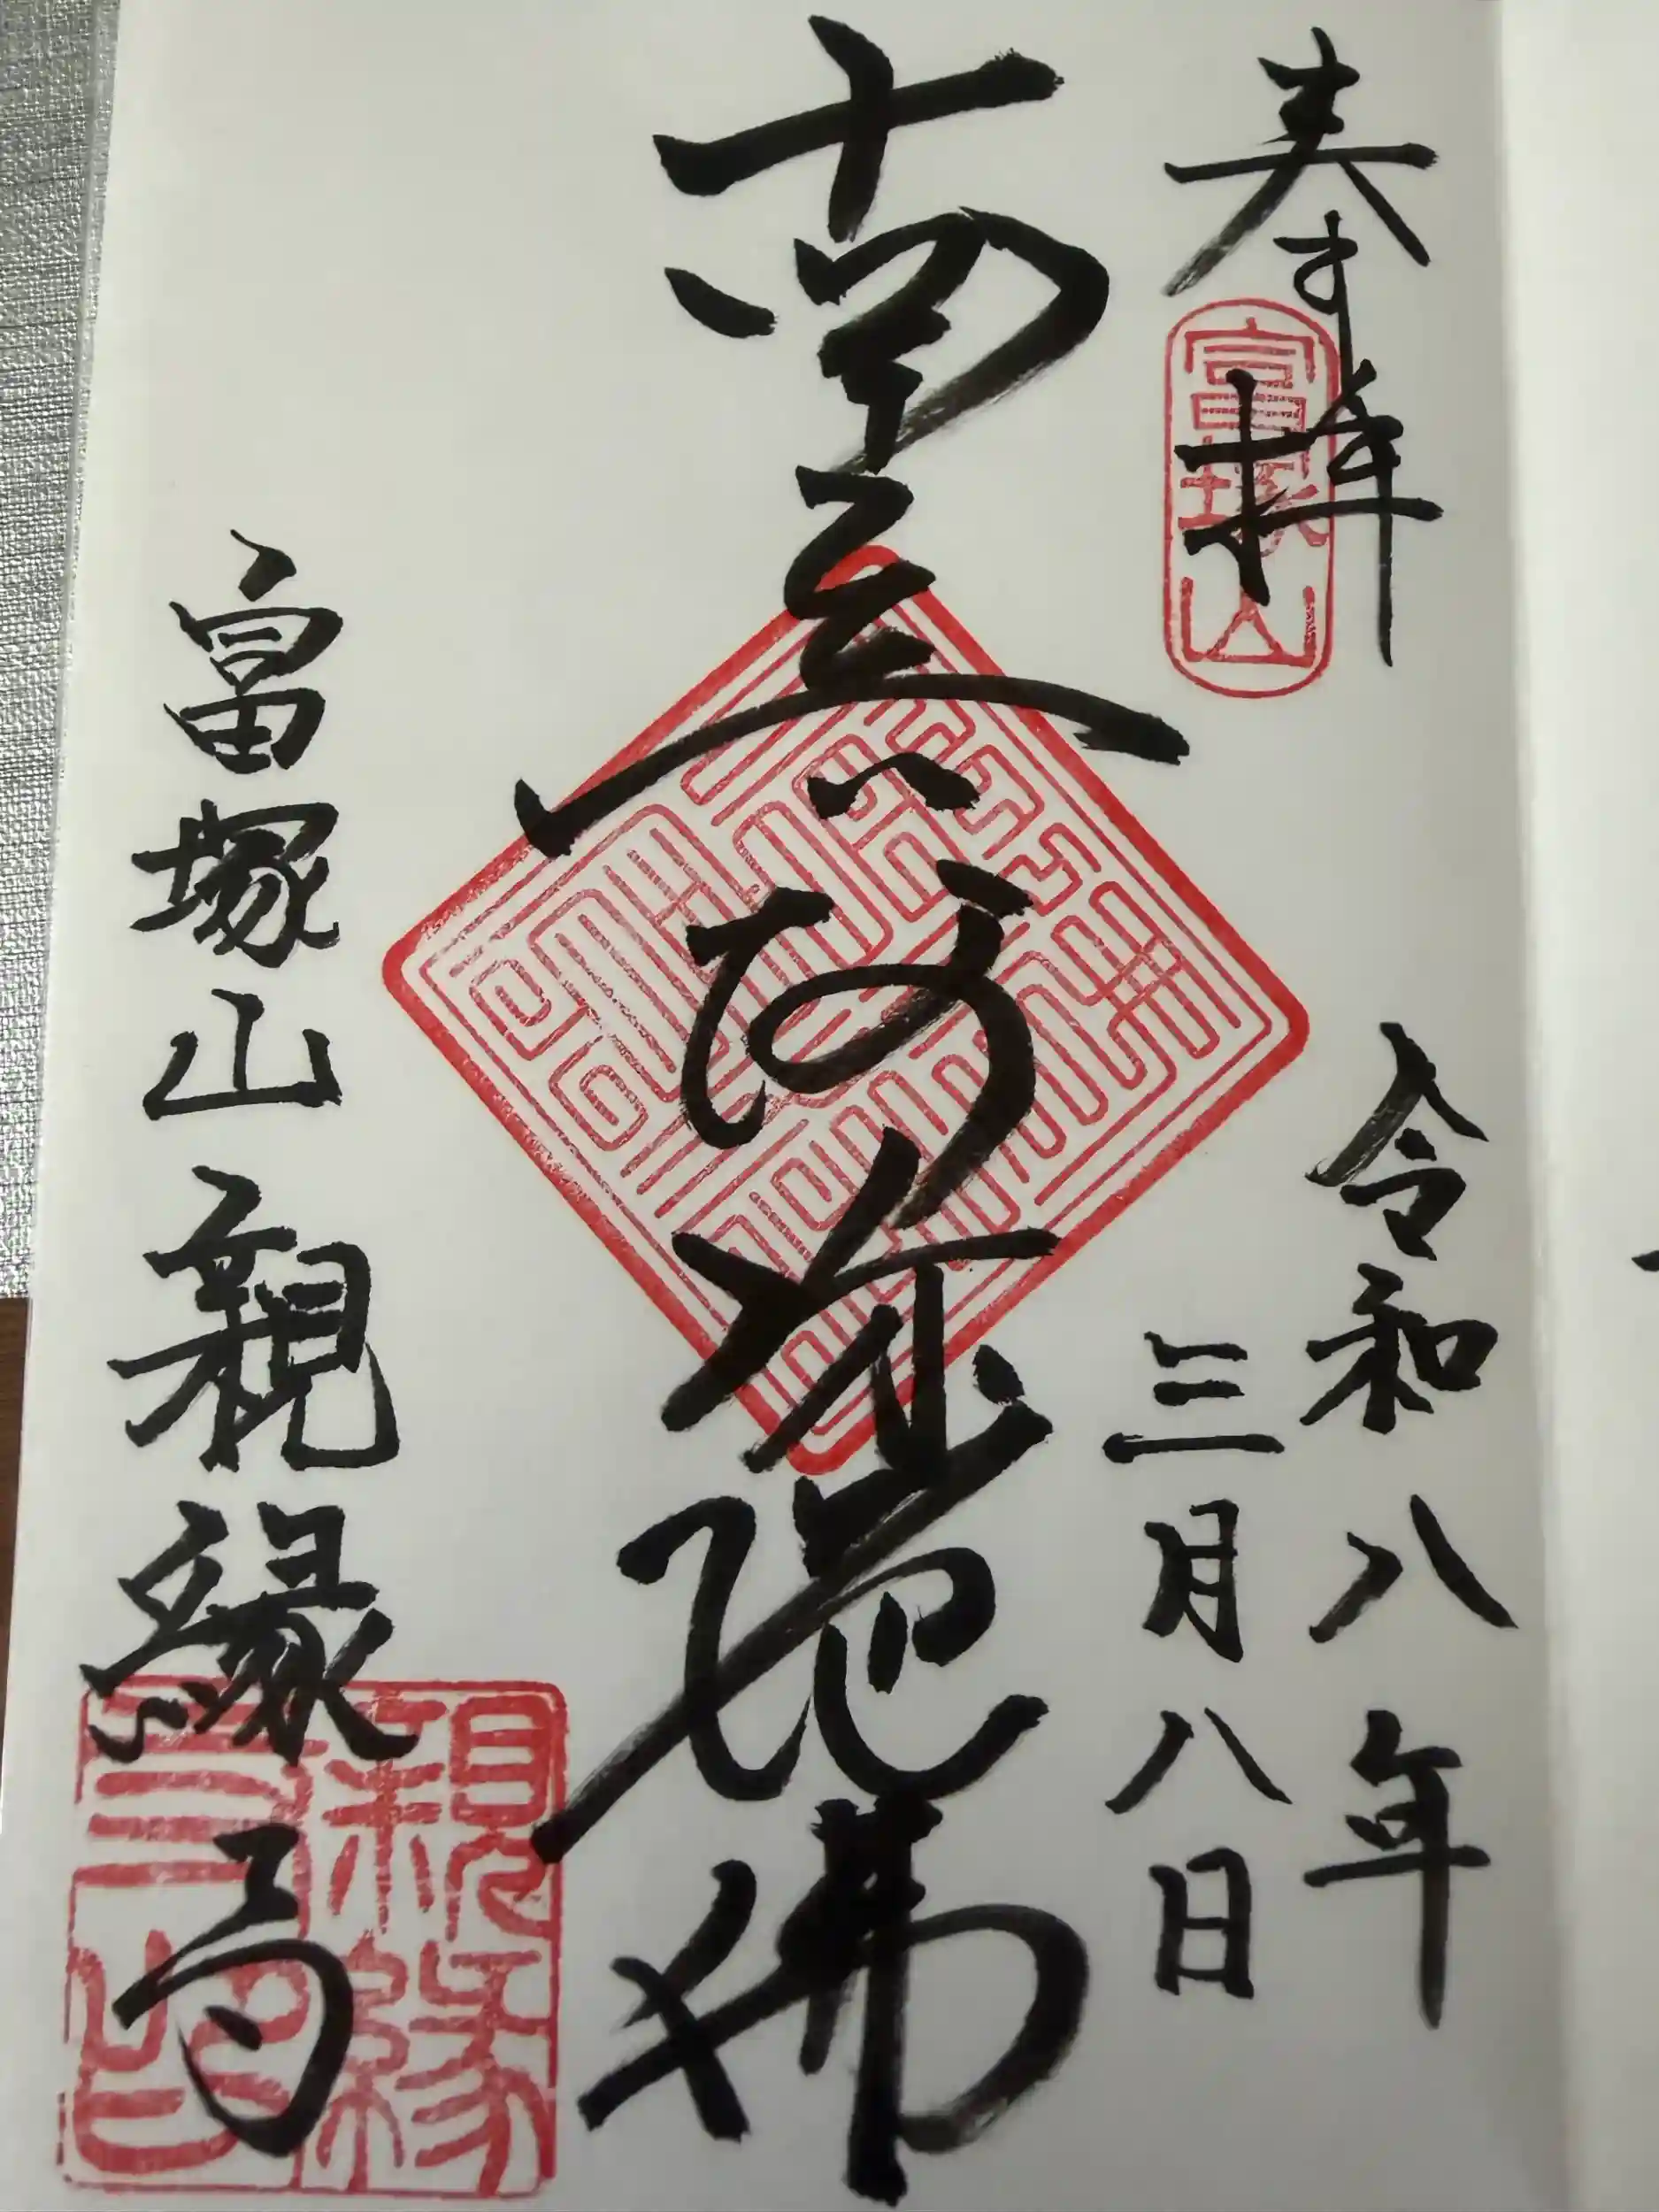 奉拝
富塚山
令和八年
三月八日
南無阿弥陀佛
富塚山親縁寺
親縁
寺印